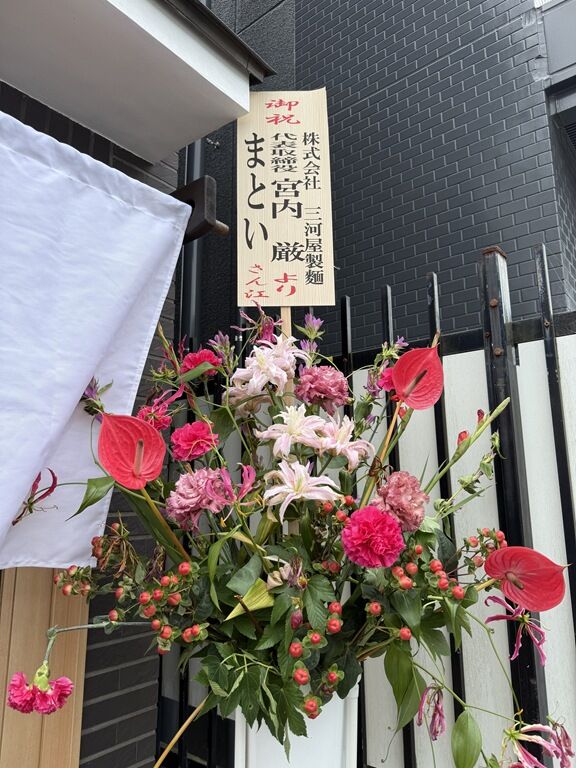 御祝
株式会社 三河屋製麵
代表取締役 宮内 厳 より
まとい さん江